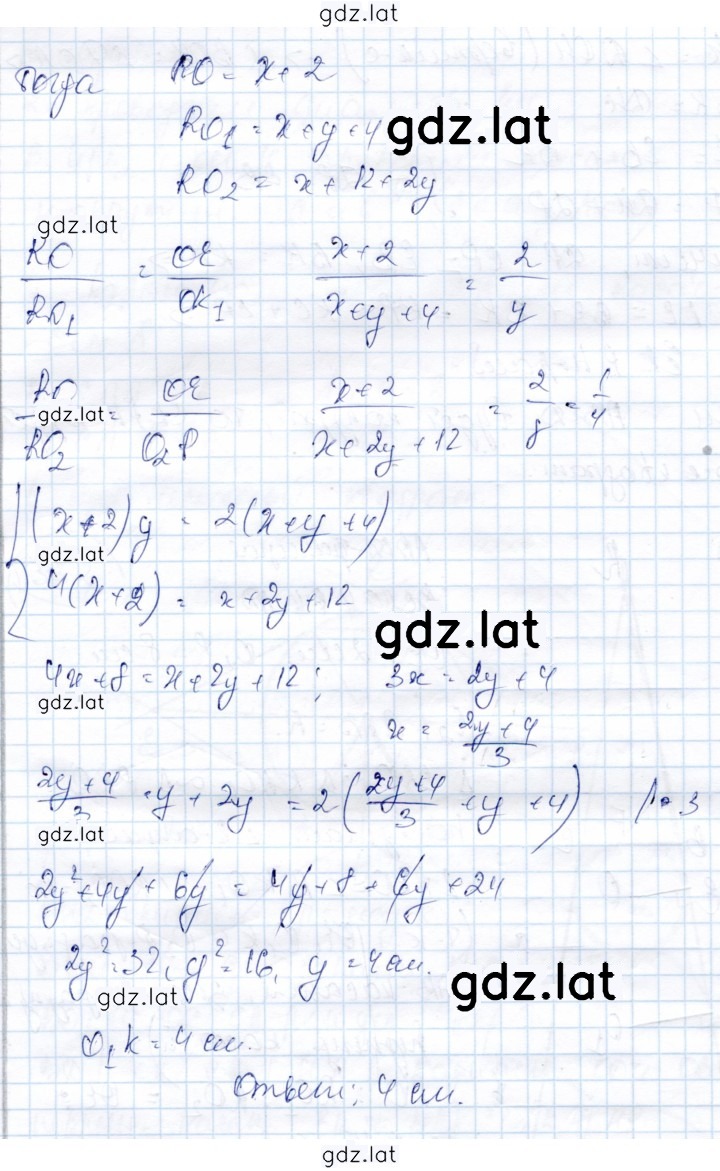 gdz.lat
Тогда RO = x + 2
RO₁ = x + y + 4
gdz.lat
RO₂ = x + 12 + 2y
gdz.lat
RO/RO₁ = OE/OK₁ (x+2)/(x+y+4) = 2/y
RO/RO₂ = OE/O₂P (x+2)/(x+2y+12) = 2/8 = 1/4
gdz.lat
(x+2)y = 2(x+y+4)
gdz.lat
4(x+2) = x+2y+12
gdz.lat
4x+8 = x+2y+12; 3x = 2y+4
gdz.lat
x = (2y+4)/3
(2y+4)/3 · y + 2y = 2((2y+4)/3 + y + 4) |·3
gdz.lat
2y² + 4y + 6y = 4y + 8 + 6y + 24
2y² = 32, y² = 16, y = 4 см.
gdz.lat
gdz.lat
O₁K = 4 см.
Ответ: 4 см.
gdz.lat